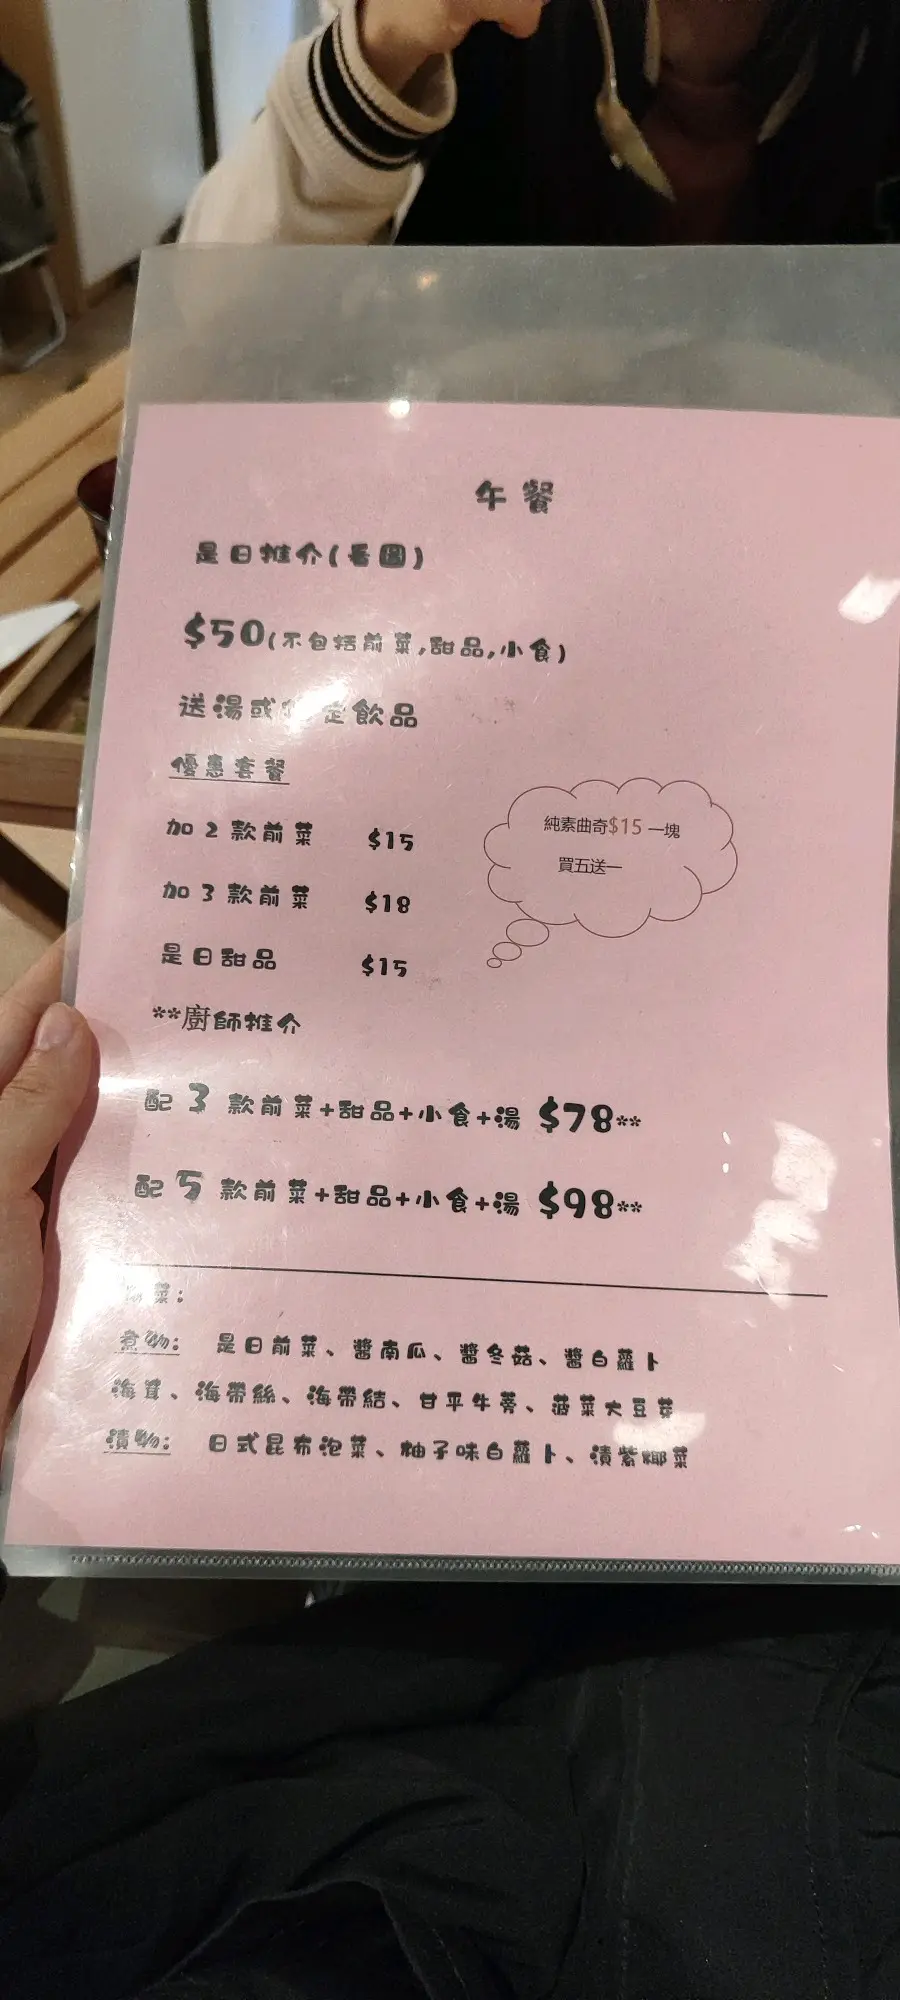 午餐
是日推介(看圖)
$50(不包括前菜,甜品,小食)
送湯或 定飲品
優惠套餐
加 2 款前菜 $15
加 3 款前菜 $18
是日甜品 $15
純素曲奇$15 一塊
買五送一
**廚師推介
配 3 款前菜+甜品+小食+湯 $78**
配 5 款前菜+甜品+小食+湯 $98**
菜:
煮物: 是日前菜、醬南瓜、醬冬菇、醬白蘿卜
海茸、海帶絲、海帶結、甘平牛蒡、菠菜大豆芽
漬物: 日式昆布泡菜、柚子味白蘿卜、漬紫椰菜